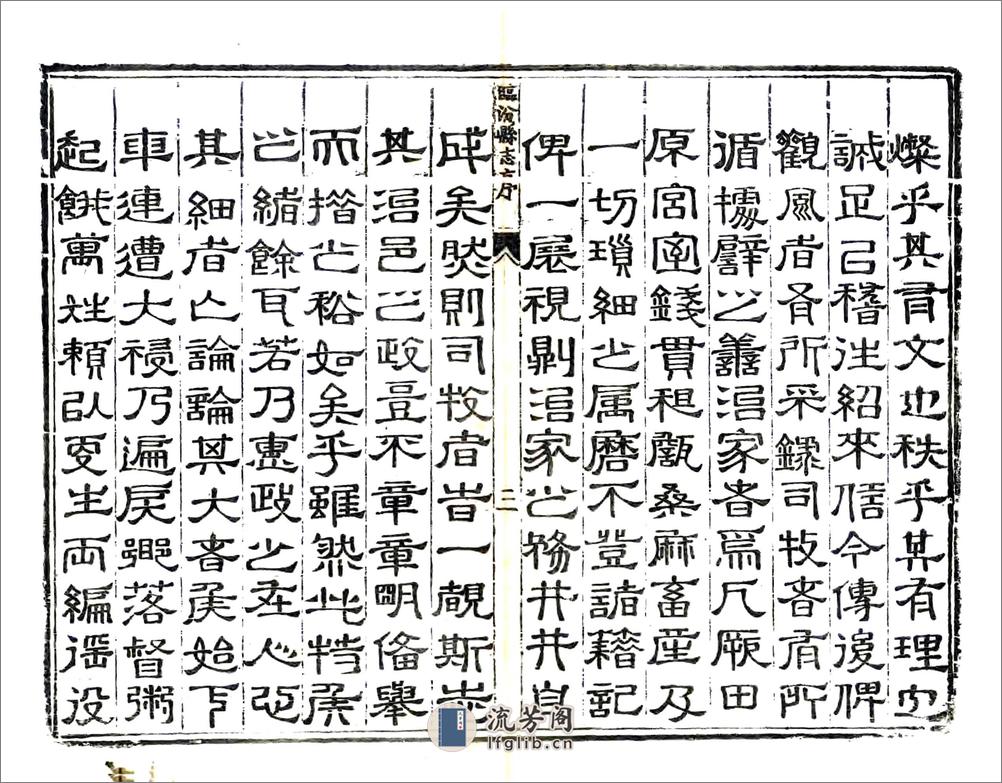 燦乎其有文也秩乎其有理也
誠足以稽往紹來信今傳後俾
觀風者有所采錄司牧者有所
循據譬之善治家者焉凡厥田
原宮室錢貫租甔桑麻畜產及
一切瑣細之属靡不登諸籍記
俾一展視則治家之務井井自
臨汾縣志序 二
成矣然則司牧者苟一覩斯志
其治邑之政豈不章章明備舉
而措之裕如矣乎雖然此特侯
之緒餘耳若乃惠政之在人心
其細者亡論論其大者侯始下
車連遭大祲乃遍戾鄉落督粥
起餓萬姓賴以更生両編徭役
流芳阁
lfglib.cn